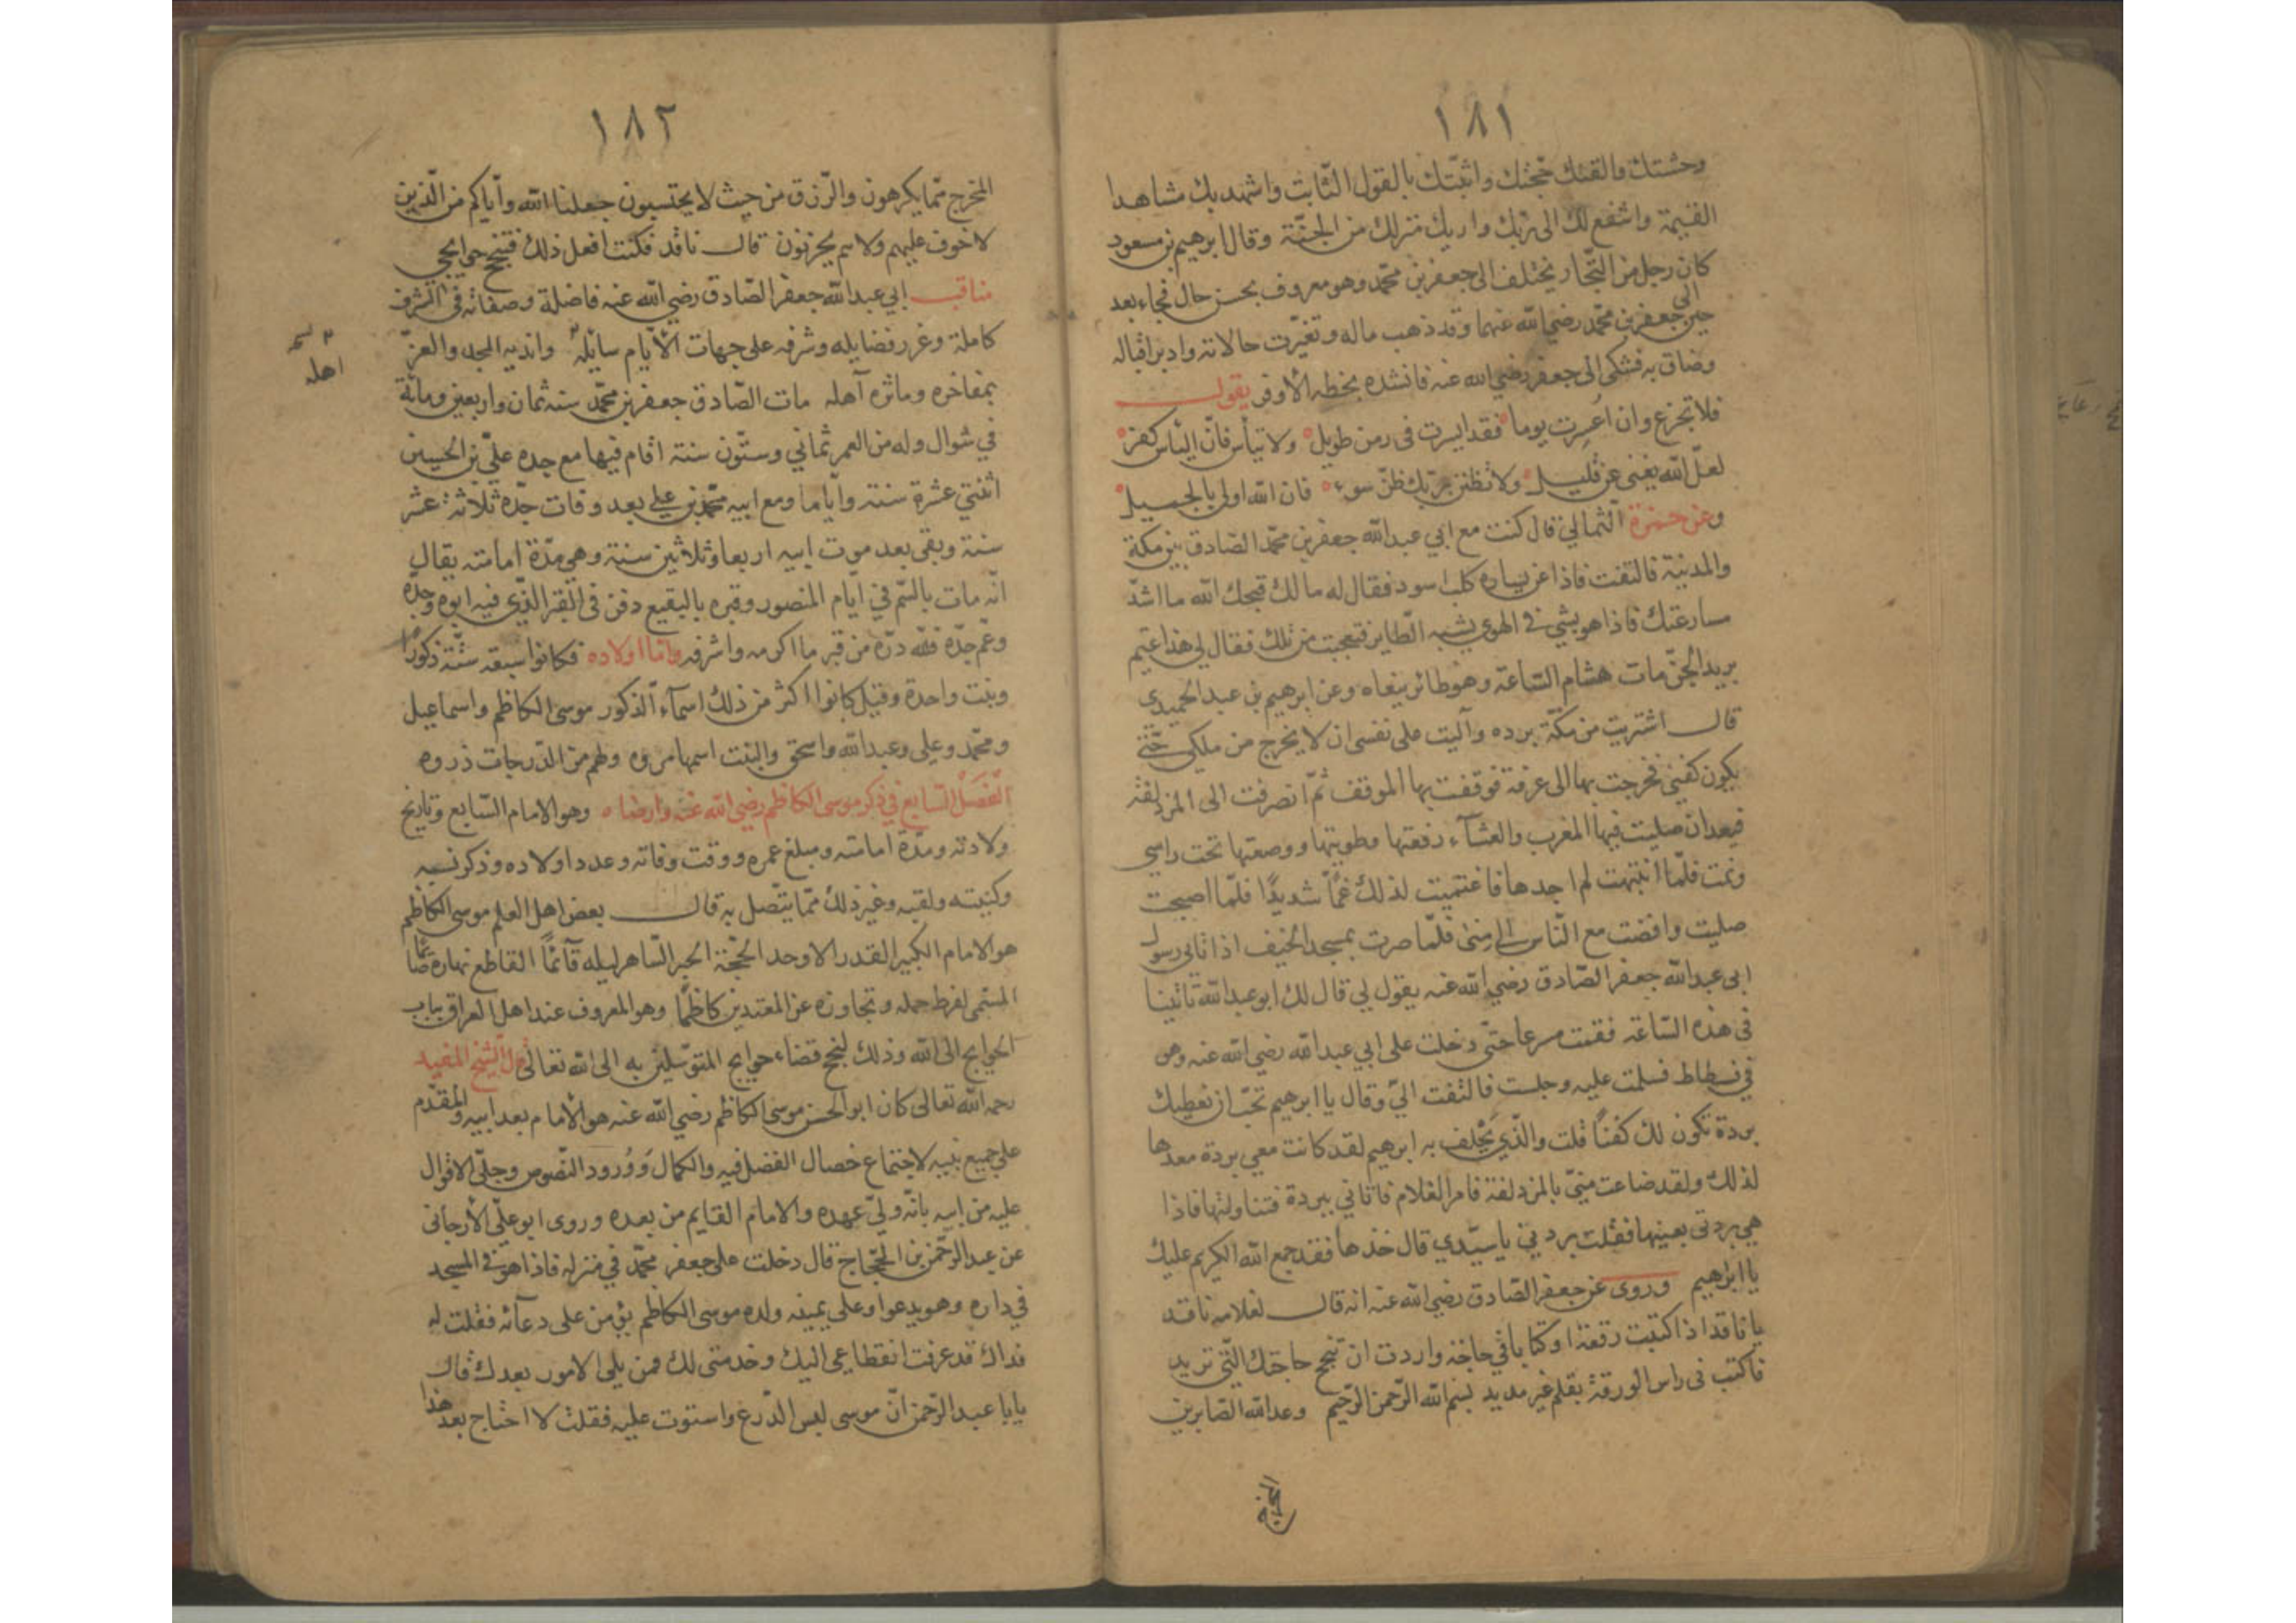 ١٨١
وحشتك والقنك حجّتك واثبّتك بالقول الثّابت واشهد بك مشاهد
القيمة واشفع لك الى ربّك واريك منزلك من الجنّة وقال ابرهيم بن مسعود
كان رجل من التّجار يختلف الى جعفر بن محمّد وهو معروف بحسن حال فجاء بعد
حين الى جعفر بن محمّد رضي الله عنهما وقد ذهب ماله وتغيّرت حالاته وادبر اقباله
وضاق به فشكى الى جعفر رضي الله عنه فانشده بخطه الأوفى يقول
فلا تجزع وان اعسرت يوما فقد ايسرت فى زمن طويل ولا تيأس فانّ اليأس كفر
لعلّ الله يغنى عن قليل ولا تظنن بربّك ظنّ سوء فان الله اولى بالجميل
وعن حمزة الثمالي قال كنت مع ابي عبد الله جعفر بن محمّد الصّادق بين مكة
والمدينة فالتفت فاذا عن يساره كلب اسود فقال له مالك قبحك الله ما اشدّ
مسارعتك فاذا هو يشي في الهوى يشبه الطّاير فتعجبت من ذلك فقال لى هذا عتيم
بريد الجنّ مات هشام السّاعة وهو طائر ينعاه وعن ابرهيم بن عبد الحميدى
قال اشتريت من مكّة برده وآليت على نفسى ان لا يخرج من ملكى حتّى
يكون كفنى فخرجت بها الى عرفة فوقفت بها الموقف ثمّ انصرفت الى المزدلفة
فبعد ان صليت فيها المغرب والعشآء رفعتها وطويتها ووضعتها تحت راسى
ونمت فلمّا انتبهت لم اجدها فاغتميت لذلك غمّاً شديدًا فلمّا اصبحت
صليت وافضت مع النّاس الى منى فلمّا صرت بمسجد الخيف اذ اتانى رسول
ابى عبد الله جعفر الصّادق رضي الله عنه يقول لى قال لك ابو عبد الله تاتينا
فى هذه السّاعة فقمت مسرعا حتّى دخلت على ابي عبد الله رضي الله عنه وهو
في فسطاط فسلمت عليه وجلست فالتفت اليّ وقال يا ابرهيم تحبّ ان نعطيك
بردة تكون لك كفناً قلت والّذي يَحْلف به ابرهيم لقد كانت معي بردة معدها
لذلك ولقد ضاعت منيّ بالمزدلفة فامر الغلام فاتاني ببردة فتناولتها فاذا
هي بردتى بعينها فقلت بردتي يا سيّدي قال خذها فقد جمع الله الكريم عليك
يا ابرٰهيم وروى عن جعفر الصّادق رضي الله عنه انه قال لغلامه ناقد
يا ناقد اذا كتبت رقعة او كتابا في حاجة واردت ان تنجح حاجتك الّتى تريد
فاكتب فى راس الورقة بقلم غير مديد بسم الله الرّحمن الرّحيم وعد الله الصّابرين
المخرج
١٨٢
المخرج ممّا يكرهون والرّزق من حيث لا يحتسبون جعلنا الله وأياكم من الّذين
لا خوف عليهم ولا هم يحزنون قال ناقد فكنت افعل ذلك فتنجح حوايجي
مناقب ابي عبد الله جعفر الصّادق رضي الله عنه فاضلة وصفاته فى الشرف
كاملة وغرر فضايله وشرفه على جهات الأيّام سايله واندية المجد والعزّ
بمفاخره وماثره آهله مات الصّادق جعفر بن محمّد سنه ثمان واربعين ومائة
في شوال وله من العمر ثماني وستّون سنة اقام فيها مع جده علىّ بن الحسين
اثنتي عشرة سنة وأياما ومع ابيه محمّد بن على بعد وفات جدّه ثلاثة عشر
سنة وبقى بعد موت ابيه اربعا وثلاثين سنة وهى مدّة امامته يقال
انّه مات بالسّم في ايّام المنصور وقبره بالبقيع دفن فى القبر الذّي فيه ابوه وجدّه
وعمّ جدّه فلله درّه من قبر ما اكرمه واشرفه وامّا اولاده فكانوا سبعه ستّة ذكورًا
وبنت واحدة وقيل كانوا اكثر من ذلك اسمآء الذكور موسى الكاظم واسماعيل
ومحمّد وعلى وعبد الله واسحق والبنت اسمها مروه ولهم من الدّرجات ذروه
الفَصَلْ السّابع فى ذكر موسى الكاظم رضي الله عنه وارضاه وهو الامام السّابع وتاريخ
ولادته ومدّة امامته ومبلغ عمره ووقت وفاته وعدد اولاده وذكر نسبه
وكنيته ولقبه وغير ذلك ممّا يتّصل به قال بعض اهل العلم موسى الكاظم
هو الامام الكبير القدر الاوحد الحجّة الحبر السّاهر ليله قآئمًا القاطع نهاره صائما
المسّمى لفرط حمله وتجاوزه عن المعتدين كاظمًا وهو المعروف عند اهل العراق بباب
الحوايج الى الله وذلك لنجح قضاء حوايج المتوسّلين به الى الله تعالى قال الشيخ المفيد
رحمه الله تعالى كان ابو الحسن موسى الكاظم رضي الله عنه هو الأمام بعد ابيه والمقدّم
على جميع بنيه لاجتماع خصال الفضل فيه والكمال وَوُرود النّصوص وجلّى الاقوال
عليه من ابيه بانّه وليّ عهده والامام القايم من بعده وروى ابو علّى الأرجانى
عن عبد الرّحمن بن الحجّاج قال دخلت على جعفر محمّد في منزله فاذا هو في المسجد
في داره وهو يدعوا وعلى يمينه ولده موسى الكاظم يؤمن على دعآئه فقلت له
فداك قد عرفت انقطاعى اليك وخدمتى لك فمن يلى الامور بعدك قال
يابا عبد الرّحمن انّ موسى لبس الدّرع واستوت عليه فقلت لا احتاج بعد هذا
اهله